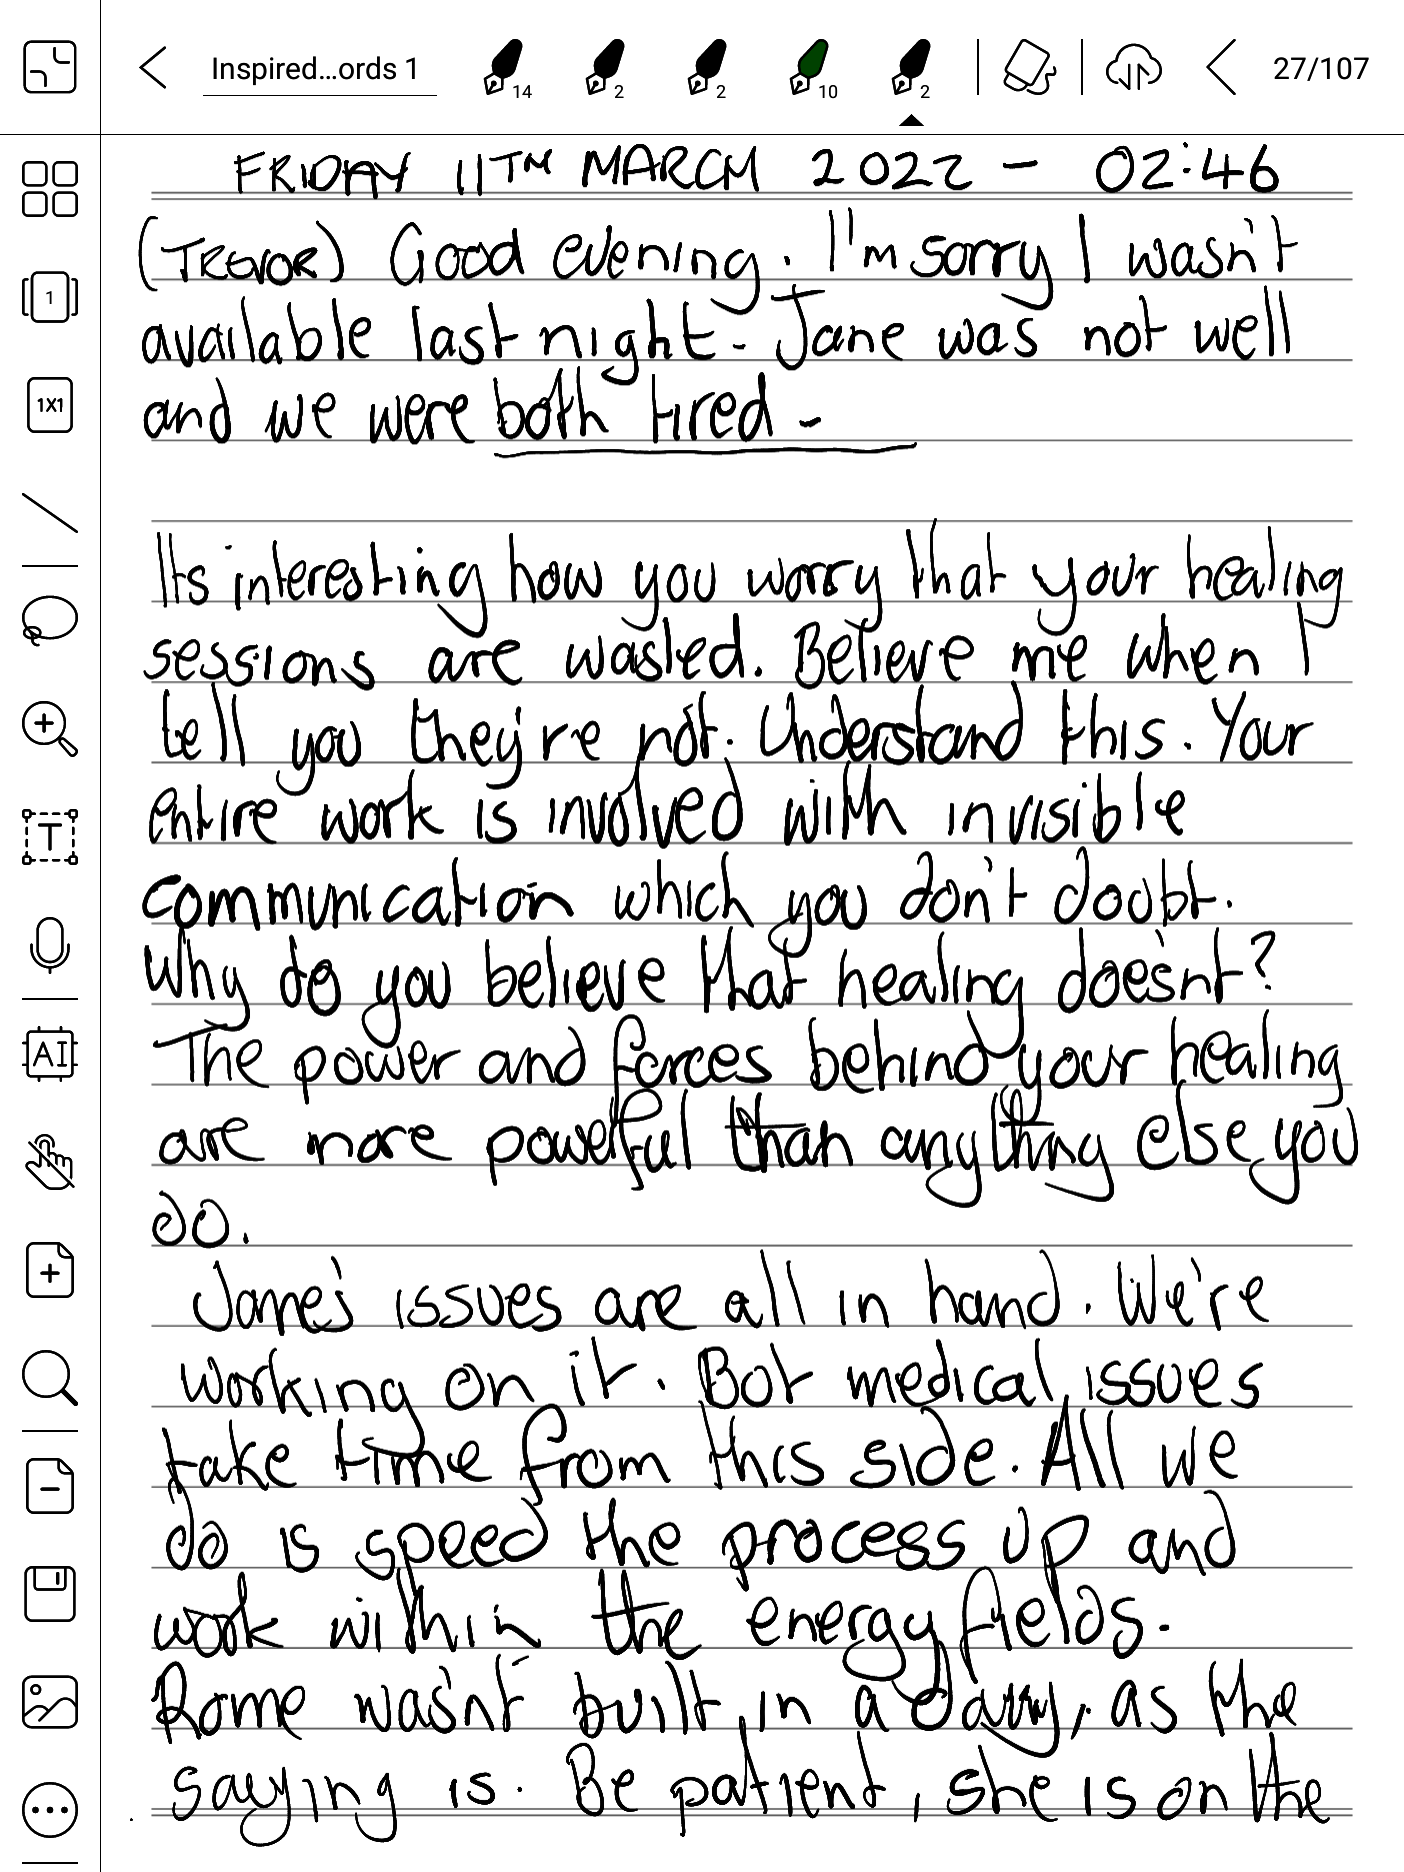 Inspired...ords 1
14
2
2
10
2
27/107
1
1X1
T
AI
FRIDAY 11TH MARCH 2022 - 02:46
(TREVOR) Good evening. I'm sorry I wasn't
available last night - Jane was not well
and we were both tired -
Its interesting how you worry that your healing
sessions are wasted. Believe me when I
tell you they're not. Understand this. Your
entire work is involved with invisible
communication which you don't doubt.
Why do you believe that healing doesn't?
The power and forces behind your healing
are more powerful than anything else you
do.
Jane's issues are all in hand. We're
working on it. But medical issues
take time from this side. All we
do is speed the process up and
work within the energy fields.
Rome wasn't built in a day, as the
saying is. Be patient, she is on the